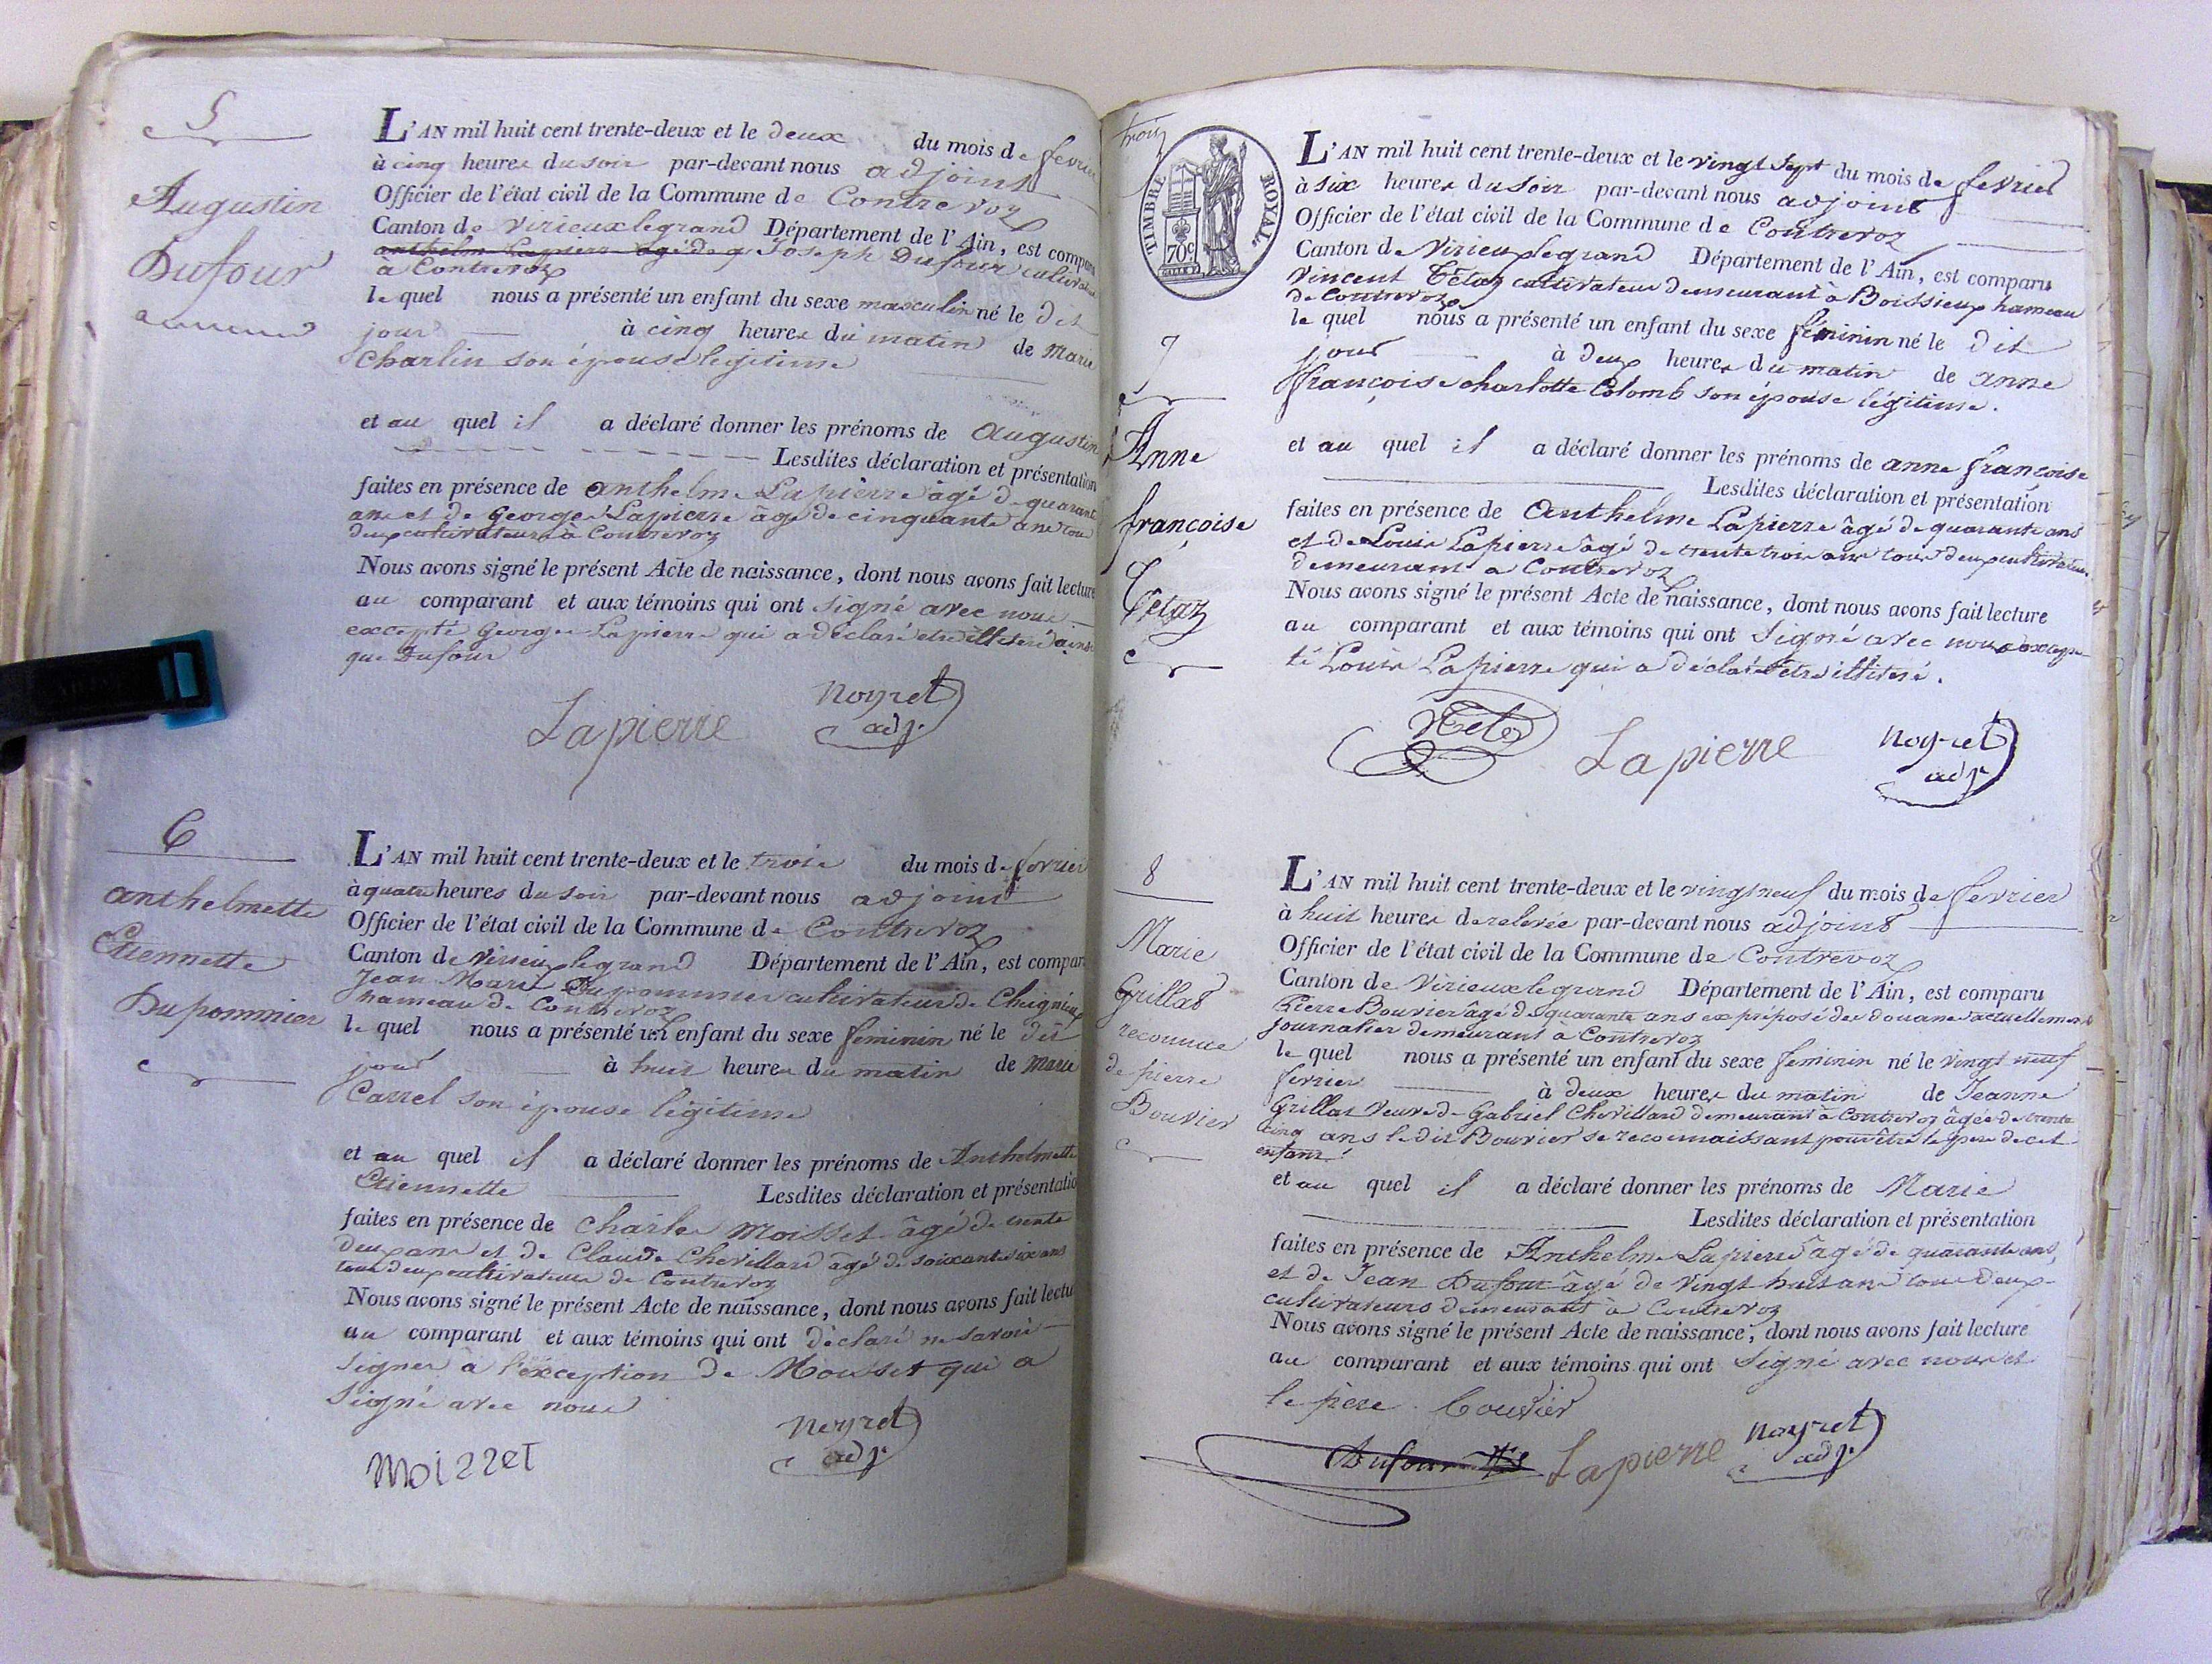 5
Augustin
Dufour
L'AN mil huit cent trente-deux et le deux du mois de fevrier
à cinq heures du soir par-devant nous adjoint
Officier de l'état civil de la Commune de Contrevoz
Canton de Virieux legrand Département de l'Ain, est comparu
anthelme Lapierre agé de q Joseph Dufour cultivateur
à Contrevoz
le quel nous a présenté un enfant du sexe masculin né le dit
jour à cinq heures du matin de Marie
Charlin son épouse légitime
et au quel il a déclaré donner les prénoms de Augustin
Lesdites déclaration et présentation
faites en présence de anthelme Lapierre âgé de quarante
ans et de George Lapierre âgé de cinquante ans tous
deux cultivateurs à Contrevoz
Nous avons signé le présent Acte de naissance, dont nous avons fait lecture
au comparant et aux témoins qui ont signé avec nous
excepté George Lapierre qui a déclaré etre illiteré ainsi
que Dufour
Lapierre Noyret
adj.
6
anthelmette
Etiennette
Dupommier
L'AN mil huit cent trente-deux et le trois du mois de fevrier
à quatre heures du soir par-devant nous adjoint
Officier de l'état civil de la Commune de Contrevoz
Canton de Virieux legrand Département de l'Ain, est comparu
Jean Marie Dupommier cultivateur de Cheignieux
hameau de Contrevoz
le quel nous a présenté un enfant du sexe feminin né le dit
jour à huit heures du matin de Marie
Carrel son épouse légitime
et au quel il a déclaré donner les prénoms de Anthelmette
Etiennette Lesdites déclaration et présentation
faites en présence de Charles Moisset âgé de trente
deux ans et de Claude Chevillard âgé de soixante six ans
tous deux cultivateurs de Contrevoz
Nous avons signé le présent Acte de naissance, dont nous avons fait lecture
au comparant et aux témoins qui ont déclaré ne savoir
signer à l'exception de Moisset qui a
signé avec nous
Moizzet Noyret
adj.
trois
TIMBRE ROYAL
70c
L'AN mil huit cent trente-deux et le vingt sept du mois de fevrier
à six heures du soir par-devant nous adjoint
Officier de l'état civil de la Commune de Contrevoz
Canton de Virieux legrand Département de l'Ain, est comparu
Vincent Tétaz cultivateur demeurant à Boissieux hameau
de Contrevoz
le quel nous a présenté un enfant du sexe féminin né le dit
jour à deux heures du matin de anne
françoise charlotte Colomb son épouse légitime.
7
Anne
françoise
Tétaz
et au quel il a déclaré donner les prénoms de anne françoise
Lesdites déclaration et présentation
faites en présence de Anthelme Lapierre âgé de quarante ans
et de Louis Lapierre âgé de trente trois ans tous deux cultivateurs
demeurant à Contrevoz
Nous avons signé le présent Acte de naissance, dont nous avons fait lecture
au comparant et aux témoins qui ont signé avec nous excep-
té Louis Lapierre qui a déclaré être illiteré.
Lapierre Noyret
adj.
8
Marie
Grillat
reconnue
de pierre
Bouvier
L'AN mil huit cent trente-deux et le vingt neuf du mois de fevrier
à huit heures de relevée par-devant nous adjoint
Officier de l'état civil de la Commune de Contrevoz
Canton de Virieux legrand Département de l'Ain, est comparu
Pierre Bouvier âgé de quarante ans ex préposé des douanes actuellement
journalier demeurant à Contrevoz
le quel nous a présenté un enfant du sexe feminin né le vingt neuf
fevrier à deux heures du matin de Jeanne
Grillat veuve de Gabriel Chevillard demeurant à Contrevoz âgée de trente
cinq ans le dit Bouvier se reconnaissant pour être le pere de cet
enfant
et au quel il a déclaré donner les prénoms de Marie
Lesdites déclaration et présentation
faites en présence de Anthelme Lapierre âgé de quarante ans,
et de Jean Dufour âgé de vingt huit ans tous deux
cultivateurs demeurant à Contrevoz
Nous avons signé le présent Acte de naissance, dont nous avons fait lecture
au comparant et aux témoins qui ont signé avec nous et
le père. Bouvier
Dufour Lapierre Noyret
adj.